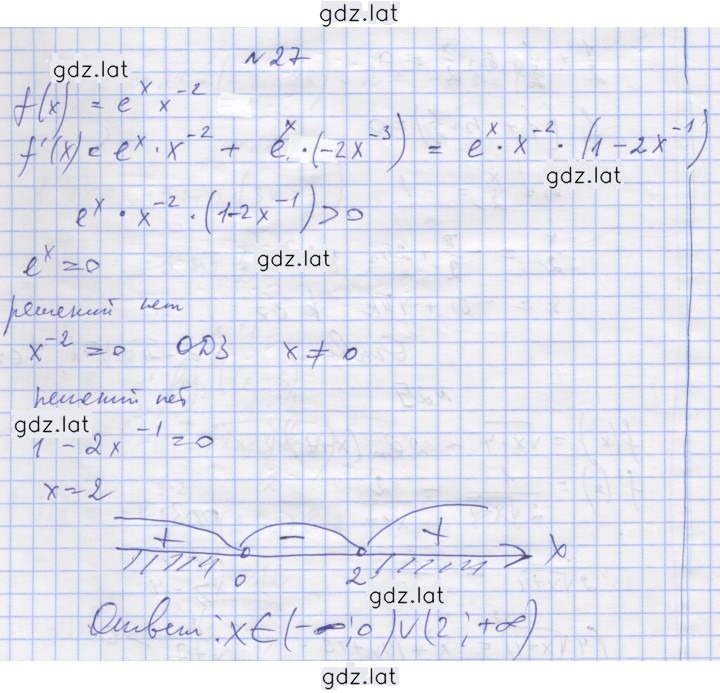 gdz.lat
№27
gdz.lat
f(x) = eˣ x⁻²
f'(x) = eˣ · x⁻² + eˣ · (-2x⁻³) = eˣ · x⁻² · (1 - 2x⁻¹)
gdz.lat
eˣ · x⁻² · (1-2x⁻¹) > 0
eˣ = 0
gdz.lat
решений нет
x⁻² = 0 ОДЗ x ≠ 0
решений нет
gdz.lat
1 - 2x⁻¹ = 0
x = 2
+ - + x
0 2
gdz.lat
Ответ: x ∈ (-∞; 0) ∪ (2; +∞)
gdz.lat